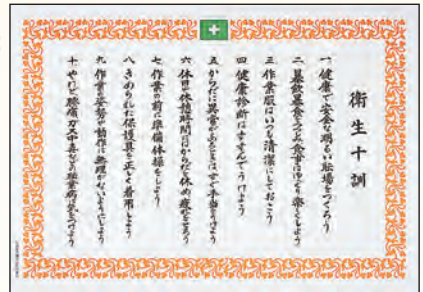 衛生十訓
一 健康で安全な明るい職場をつくろう
二 暴飲暴食をつつしみ食事はゆっくり楽しくしよう
三 作業服はいつも清潔にしておこう
四 健康診断はすすんでうけよう
五 からだに異常があるときはすぐ手当をうけよう
六 休日や休憩時間にはからだを休め疲れをとろう
七 作業の前に準備体操をしよう
八 きめられた保護具を正しく着用しよう
九 作業の姿勢や動作に無理がないようにしよう
十 やけど腰痛ガス中毒など職業病に気をつけよう